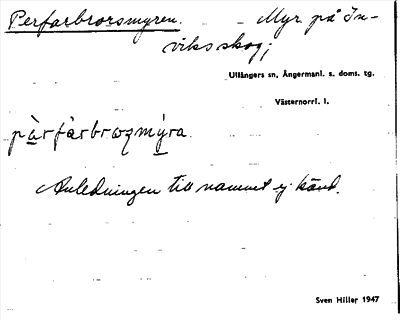 Perfarbrorsmyren. - Myr. på In-
viks skog;
Ullångers sn, Ångermanl. s. doms. tg.
Västernorrl. l.
pàrfàrbroꝛmýra.
Anledningen till namnet ej känd.
Sven Hiller 1947